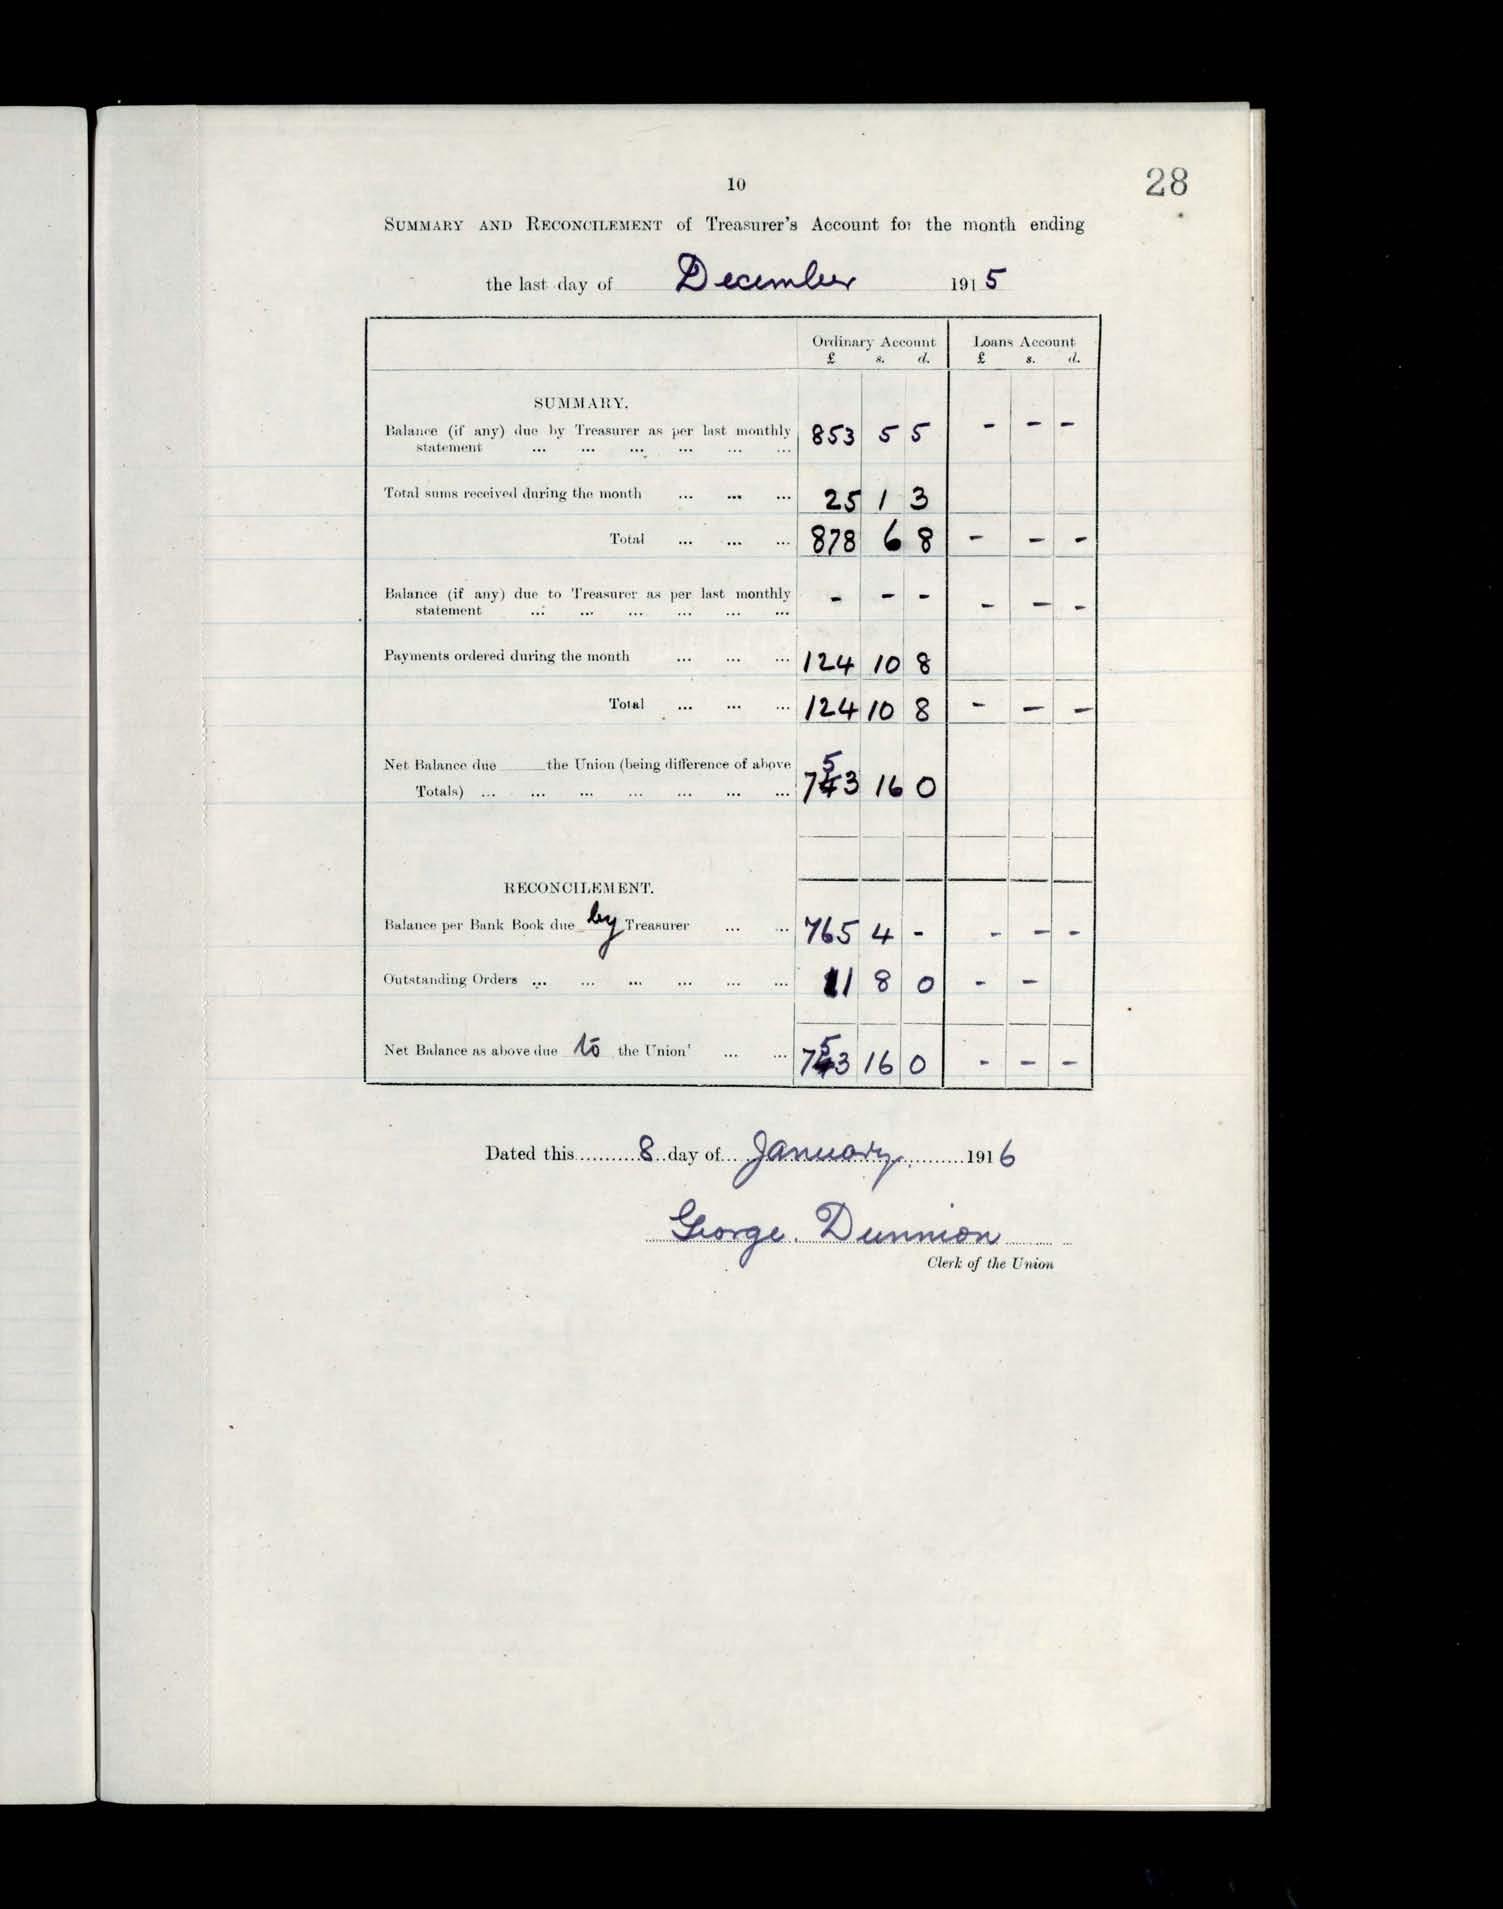 28
10
SUMMARY AND RECONCILEMENT of Treasurer's Account for the month ending
the last day of December 1915
Ordinary Account Loans Account
£ s. d. £ s. d.
SUMMARY.
Balance (if any) due by Treasurer as per last monthly
statement ... ... ... ... ... ... 853 5 5 - - -
Total sums received during the month ... ... ... 25 1 3
Total ... ... ... 878 6 8 - - -
Balance (if any) due to Treasurer as per last monthly
statement ... ... ... ... ... ... - - - - - -
Payments ordered during the month ... ... ... 124 10 8
Total ... ... ... 124 10 8 - - -
Net Balance due ......... the Union (being difference of above
Totals) ... ... ... ... ... ... ... 753 16 0
RECONCILEMENT.
Balance per Bank Book due by Treasurer ... ... 765 4 - - - -
Outstanding Orders ... ... ... ... ... ... 11 8 0 - -
Net Balance as above due to the Union' ... ... 753 16 0 - - -
Dated this..........8..day of...January...........1916
George. Dunnion
Clerk of the Union